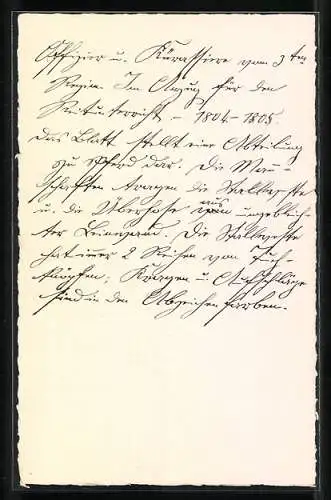 Offizier u. Kürassiere vom 3ten
Regim. Im Anzug für den
Reitunterricht – 1804–1805.
Das Blatt stellt eine Abteilung
zu Pferd dar. Die Mann-
schaften tragen die Stallweste
u. die Überhose aus ungebleich-
ter Leinwand. Die Stallweste
hat zwei 2 Reihen von Tuch-
knöpfen; Kragen u. Aufschläge
sind in den Abzeichenfarben.